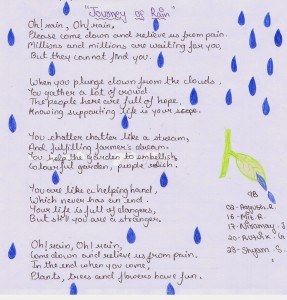 "Journey of Rain"
Oh! rain, Oh! rain,
Please come down and relieve us from pain.
Millions and millions are waiting for you,
But they cannot find you.
When you plunge down from the clouds,
You gather a lot of crowd.
The people here are full of hope,
Knowing supporting life is your scope.
You chatter chatter like a stream,
And fulfilling farmer's dream.
You help the garden to embellish,
Colourful garden, people relish.
You are like a helping hand,
Which never has an end.
Your life is full of dangers,
But still you are a stranger.
Oh! Rain, Oh! rain,
Come down and relieve us from pain.
In the end when you come,
Plants, trees and flowers have fun.
9B
R.
17- J
20- G
Shyam. S.